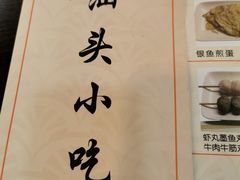 汕头小吃
银鱼煎蛋
虾丸墨鱼丸
牛肉牛筋丸